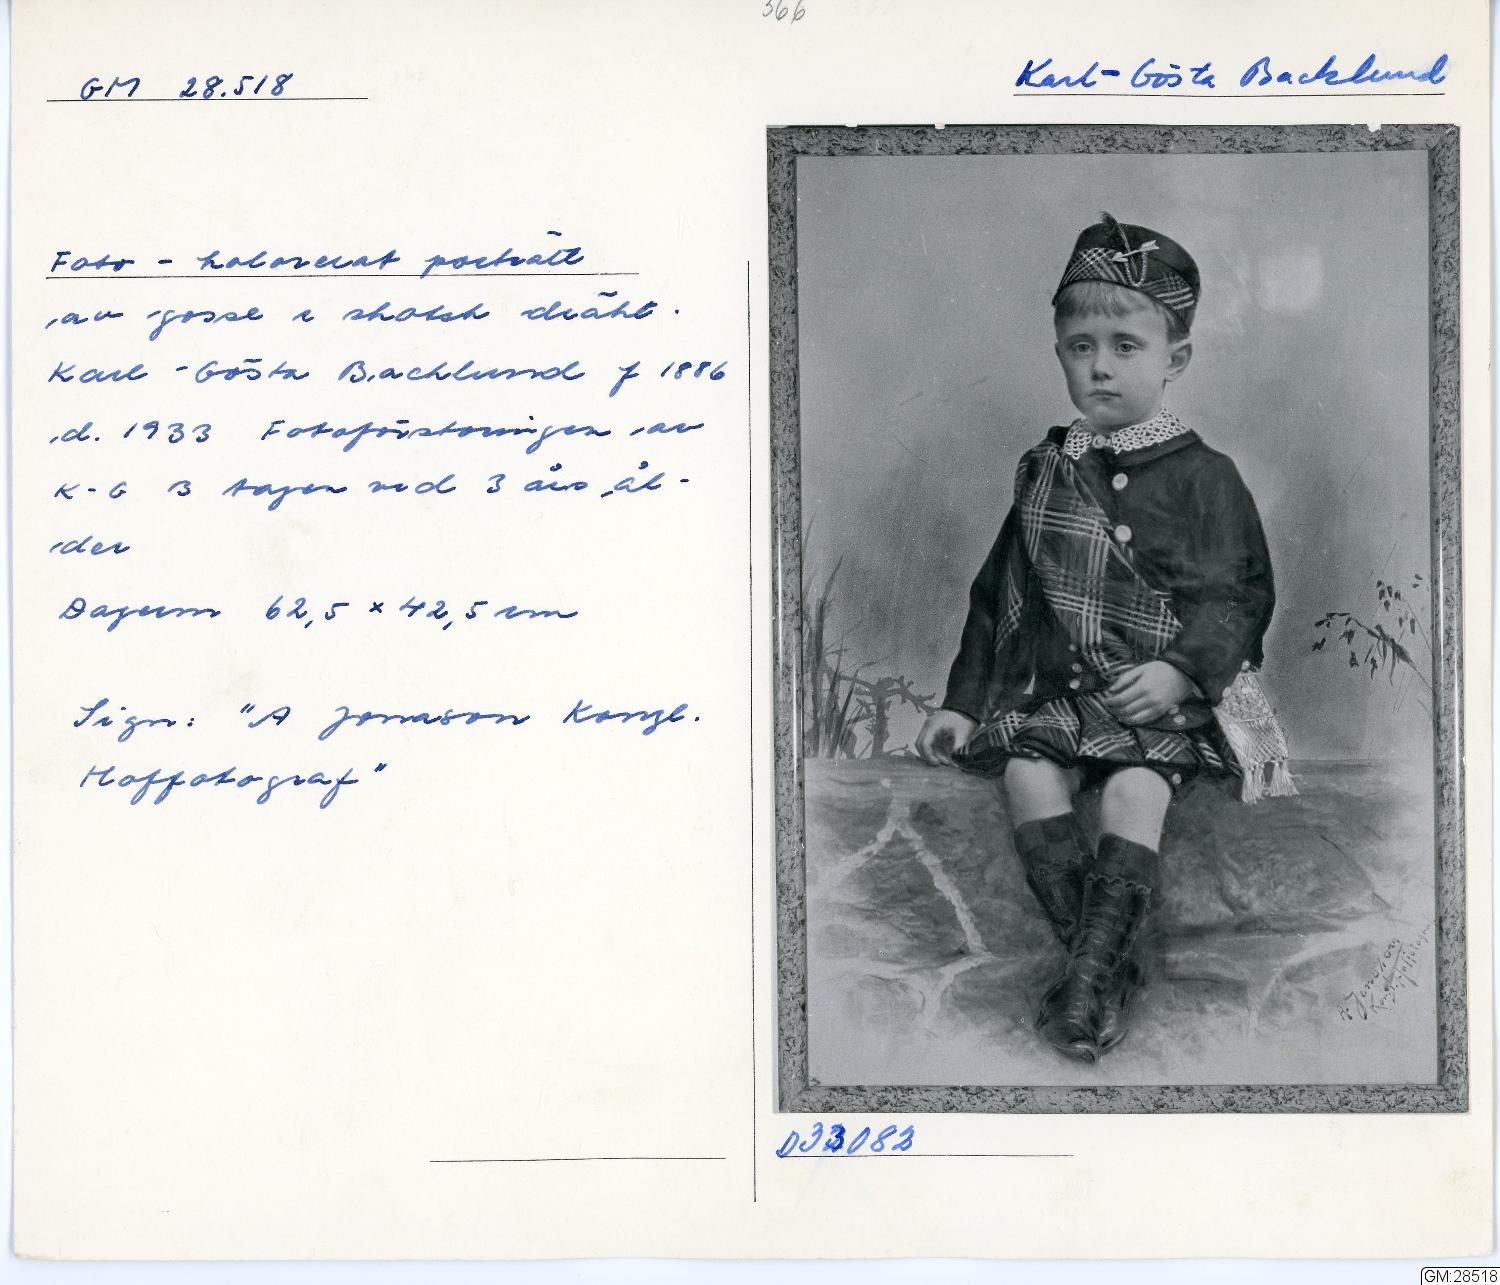 366
GM 28.518
Karl-Gösta Backlund
Foto - kolorerat porträtt
av gosse i skotsk dräkt.
Karl-Gösta Backlund f 1886
d. 1933 Fotoförstoringen av
K-G B tagen vid 3 års ål-
der
Dagerm 62,5 x 42,5 cm
Sign: "A Jonason Kongl.
Hoffotograf"
A Jonason
Kongl. Hoffotograf
D33083
GM:28518